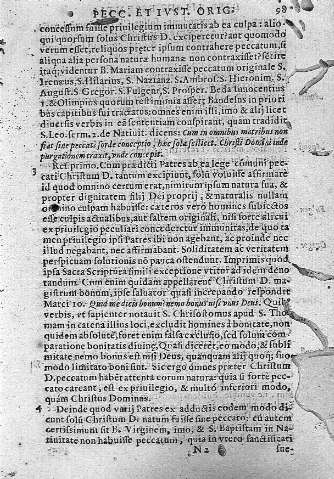 PECC. ET IVST. ORIG. 98
concessum fuisse priuilegium immunitatis ab ea culpa: alio
qui quorsum solus Christus D. exciperetur: aut quomodo
verum esset, reliquos præter ipsum contrahere peccatum, si
aliqua alia persona naturæ humanæ non contraxisset? scri
itaq; videntur B. Mariam contraxisse peccatum originale S.
Irenæus. S. Hilarius, S. Nazianz. S. Ambros. S. Hieronim. S.
August. S. Gregor. S. Fulgent. S. Prosper. Beda Innocentius
& Olimpius quorum testimonia assert Bandelus in priori
bus capitibus sui tractatus; omnes enim isti, imo & alij licet
diuersis verbis in ea sententiam conspirant, quam tradidit
S. Leo serm. 2. de Natiuit. dicens: Cum in omnibus matribus non
fiat sine peccati sorde conceptio, hæc sola scilicet. Christi Domini inde
purgationem traxit, unde concepit.
3 Resp. primo. Cum prædicti Patres ab ea lege communi pec
cati Christum D. tantum excipiunt, solū voluisse affirmare
id quod omnino certum erat, nimirum ipsum natura sua, &
propter dignitatem filij Dei proprij, & naturalis nullam
omnino culpam habuisse: cæteros vero homines subiectos
esse culpis actualibus, aut saltem originali, nisi forte alicui
ex priuilegio peculiari concederetur immunitas, de quo ta
men priuilegio ipsi Patres ibi non agebant, ac proinde nec
illud negabant, nec affirmabant. Soliditatem ac veritatem
perspicuam solutionis nō pauca ostendunt. Imprimis quod
ipsa Sacra Scriptura simili exceptione vtitur ad idem deno
tandum Cum enim quidam appellaret Christum D. ma
gistrum bonum, ipse saluator quasi increpando respondit
Marci 10: Quid me dicis bonum? nemo bonus nisi unus Deus. Quib.
verbis, et sapienter notauit S. Christostomus apud S. Tho
mam in catena illius loci, excludit homines à bonitate, non
quidem absolute, foret enim falsa exclusio, sed solum com
paratione bonitatis diuinæ. Quasi diceret, eo modo, & subli
mitate nemo bonus est nisi Deus, quanquam alij quoq; suo
modo limitato boni sint. Sic ergo omnes præter Christum
D. peccatum habēt attenta eorum natura: quia si forte pec
cato careant, est ex priuilegio, & multo inferiori modo,
quàm Christus Dominus.
4 Deinde quod varij Patres ex adductis eodem modo di
cunt solū Christum D. natum fuisse sine peccato; cū autem
certissimum sit B. Virginem, imo, & S. Baptistam in Na
tiuitate non habuisse peccatum, quia in vtero sanctificati
N 2 fue-